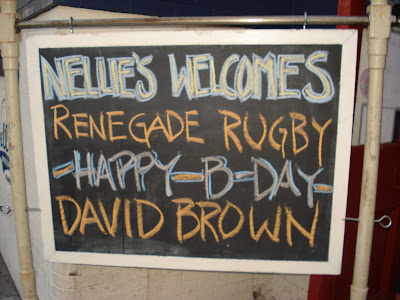 NELLIE'S WELCOMES
RENEGADE RUGBY
-HAPPY-B-DAY-
DAVID BROWN